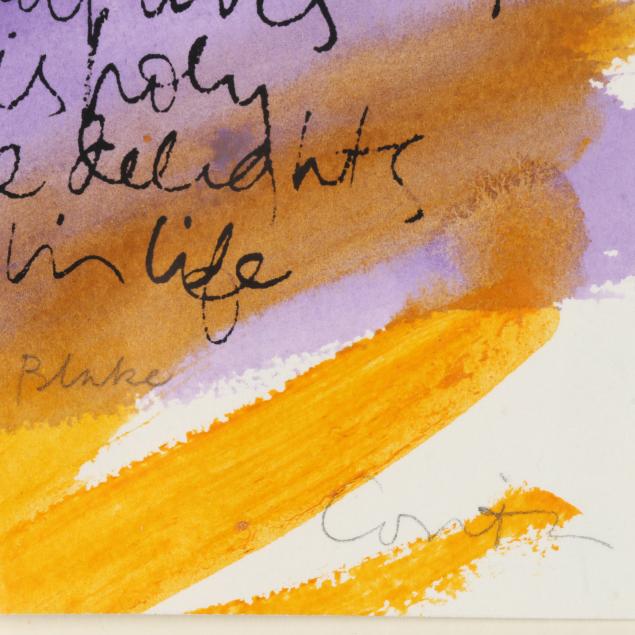 is holy
e delights
in life
Blake
Corita